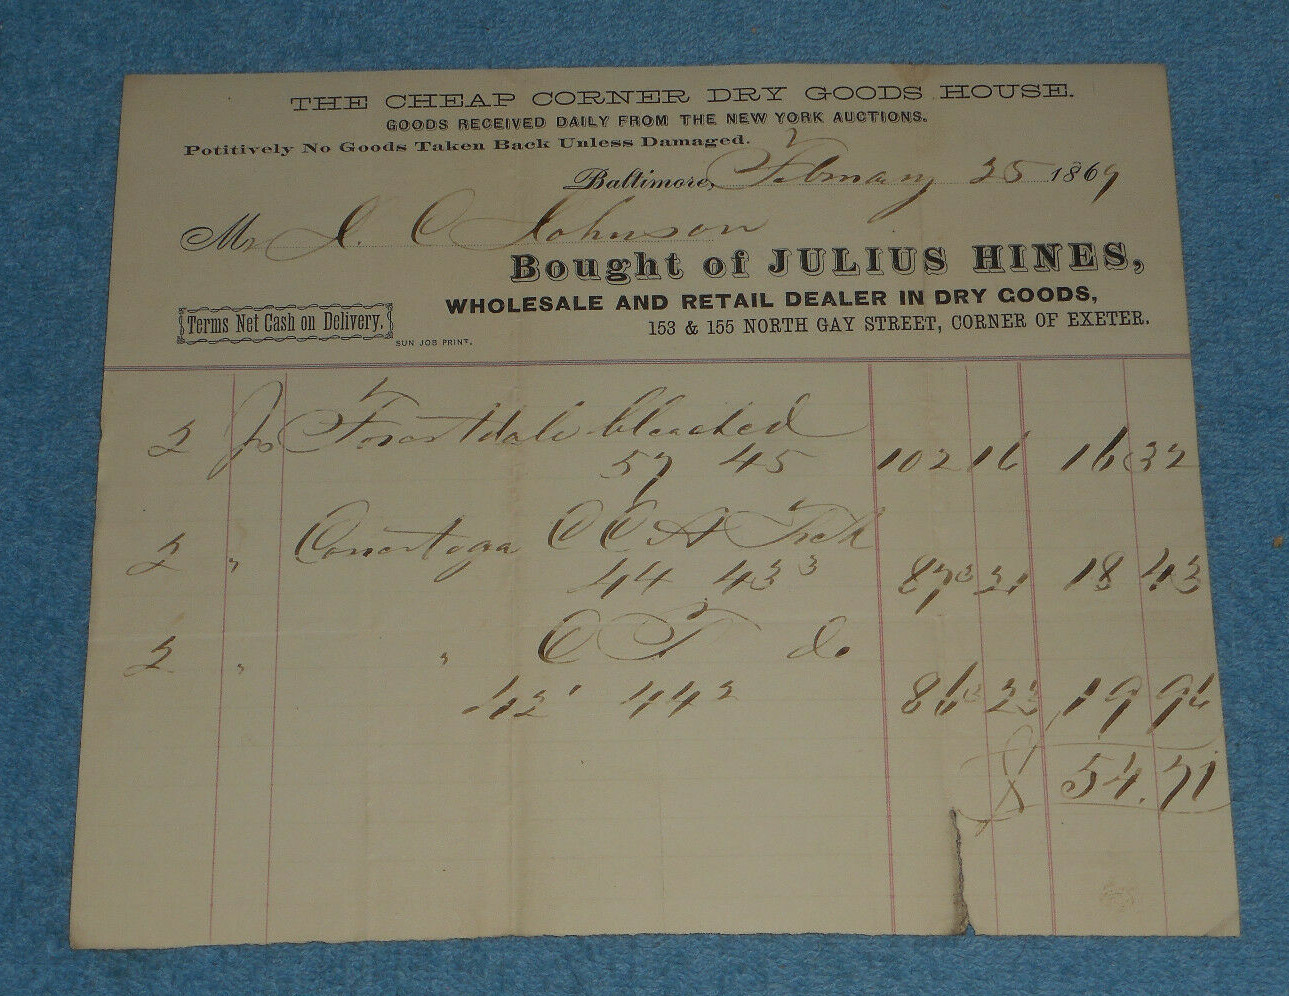 THE CHEAP CORNER DRY GOODS HOUSE.
GOODS RECEIVED DAILY FROM THE NEW YORK AUCTIONS.
Potitively No Goods Taken Back Unless Damaged.
Baltimore, February 25 1869
Mr J. C Johnson
Bought of JULIUS HINES,
WHOLESALE AND RETAIL DEALER IN DRY GOODS,
Terms Net Cash on Delivery.
153 & 155 NORTH GAY STREET, CORNER OF EXETER.
SUN JOB PRINT.
2 Ps Forestdale bleached
57 45 102 16 16 32
2 " Conestoga C C A Tick
44 43 3 87 3 21 18 43
2 " " C T do
42 1 44 2 86 3 23 19 96
$ 54.71